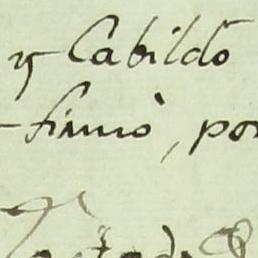 y Cabildo
firmò, por